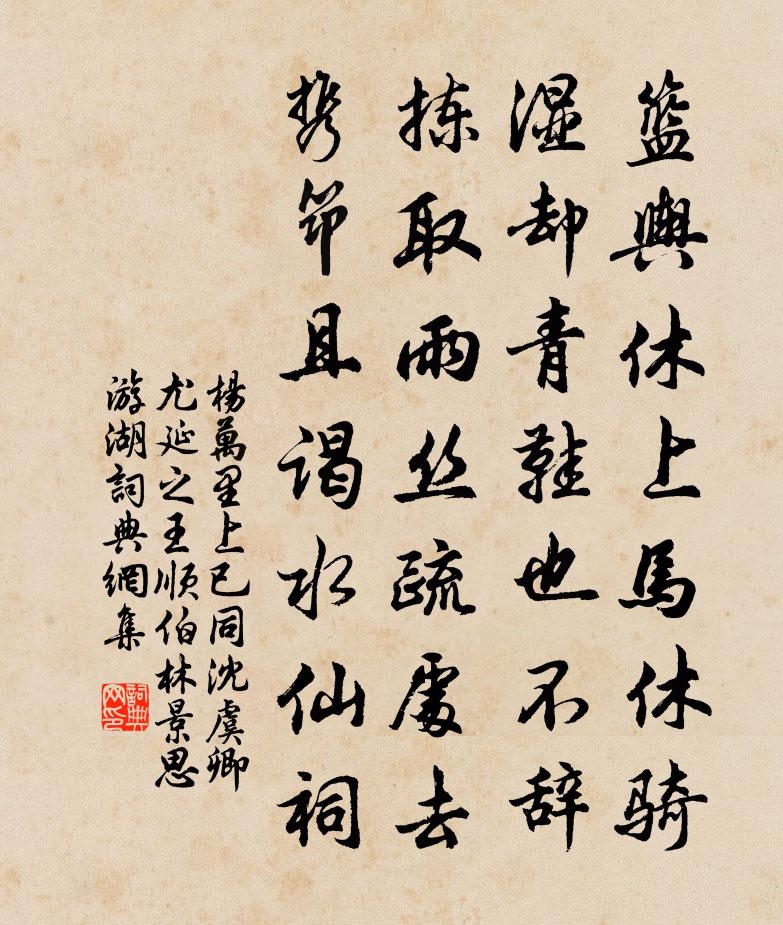 籃輿休上馬休骑
湿却青鞋也不辞
拣取雨丝疏處去
携笻且谒水仙祠
楊萬里上巳同沈虞卿
尤延之王順伯林景思
游湖詞典網集
詞典网印